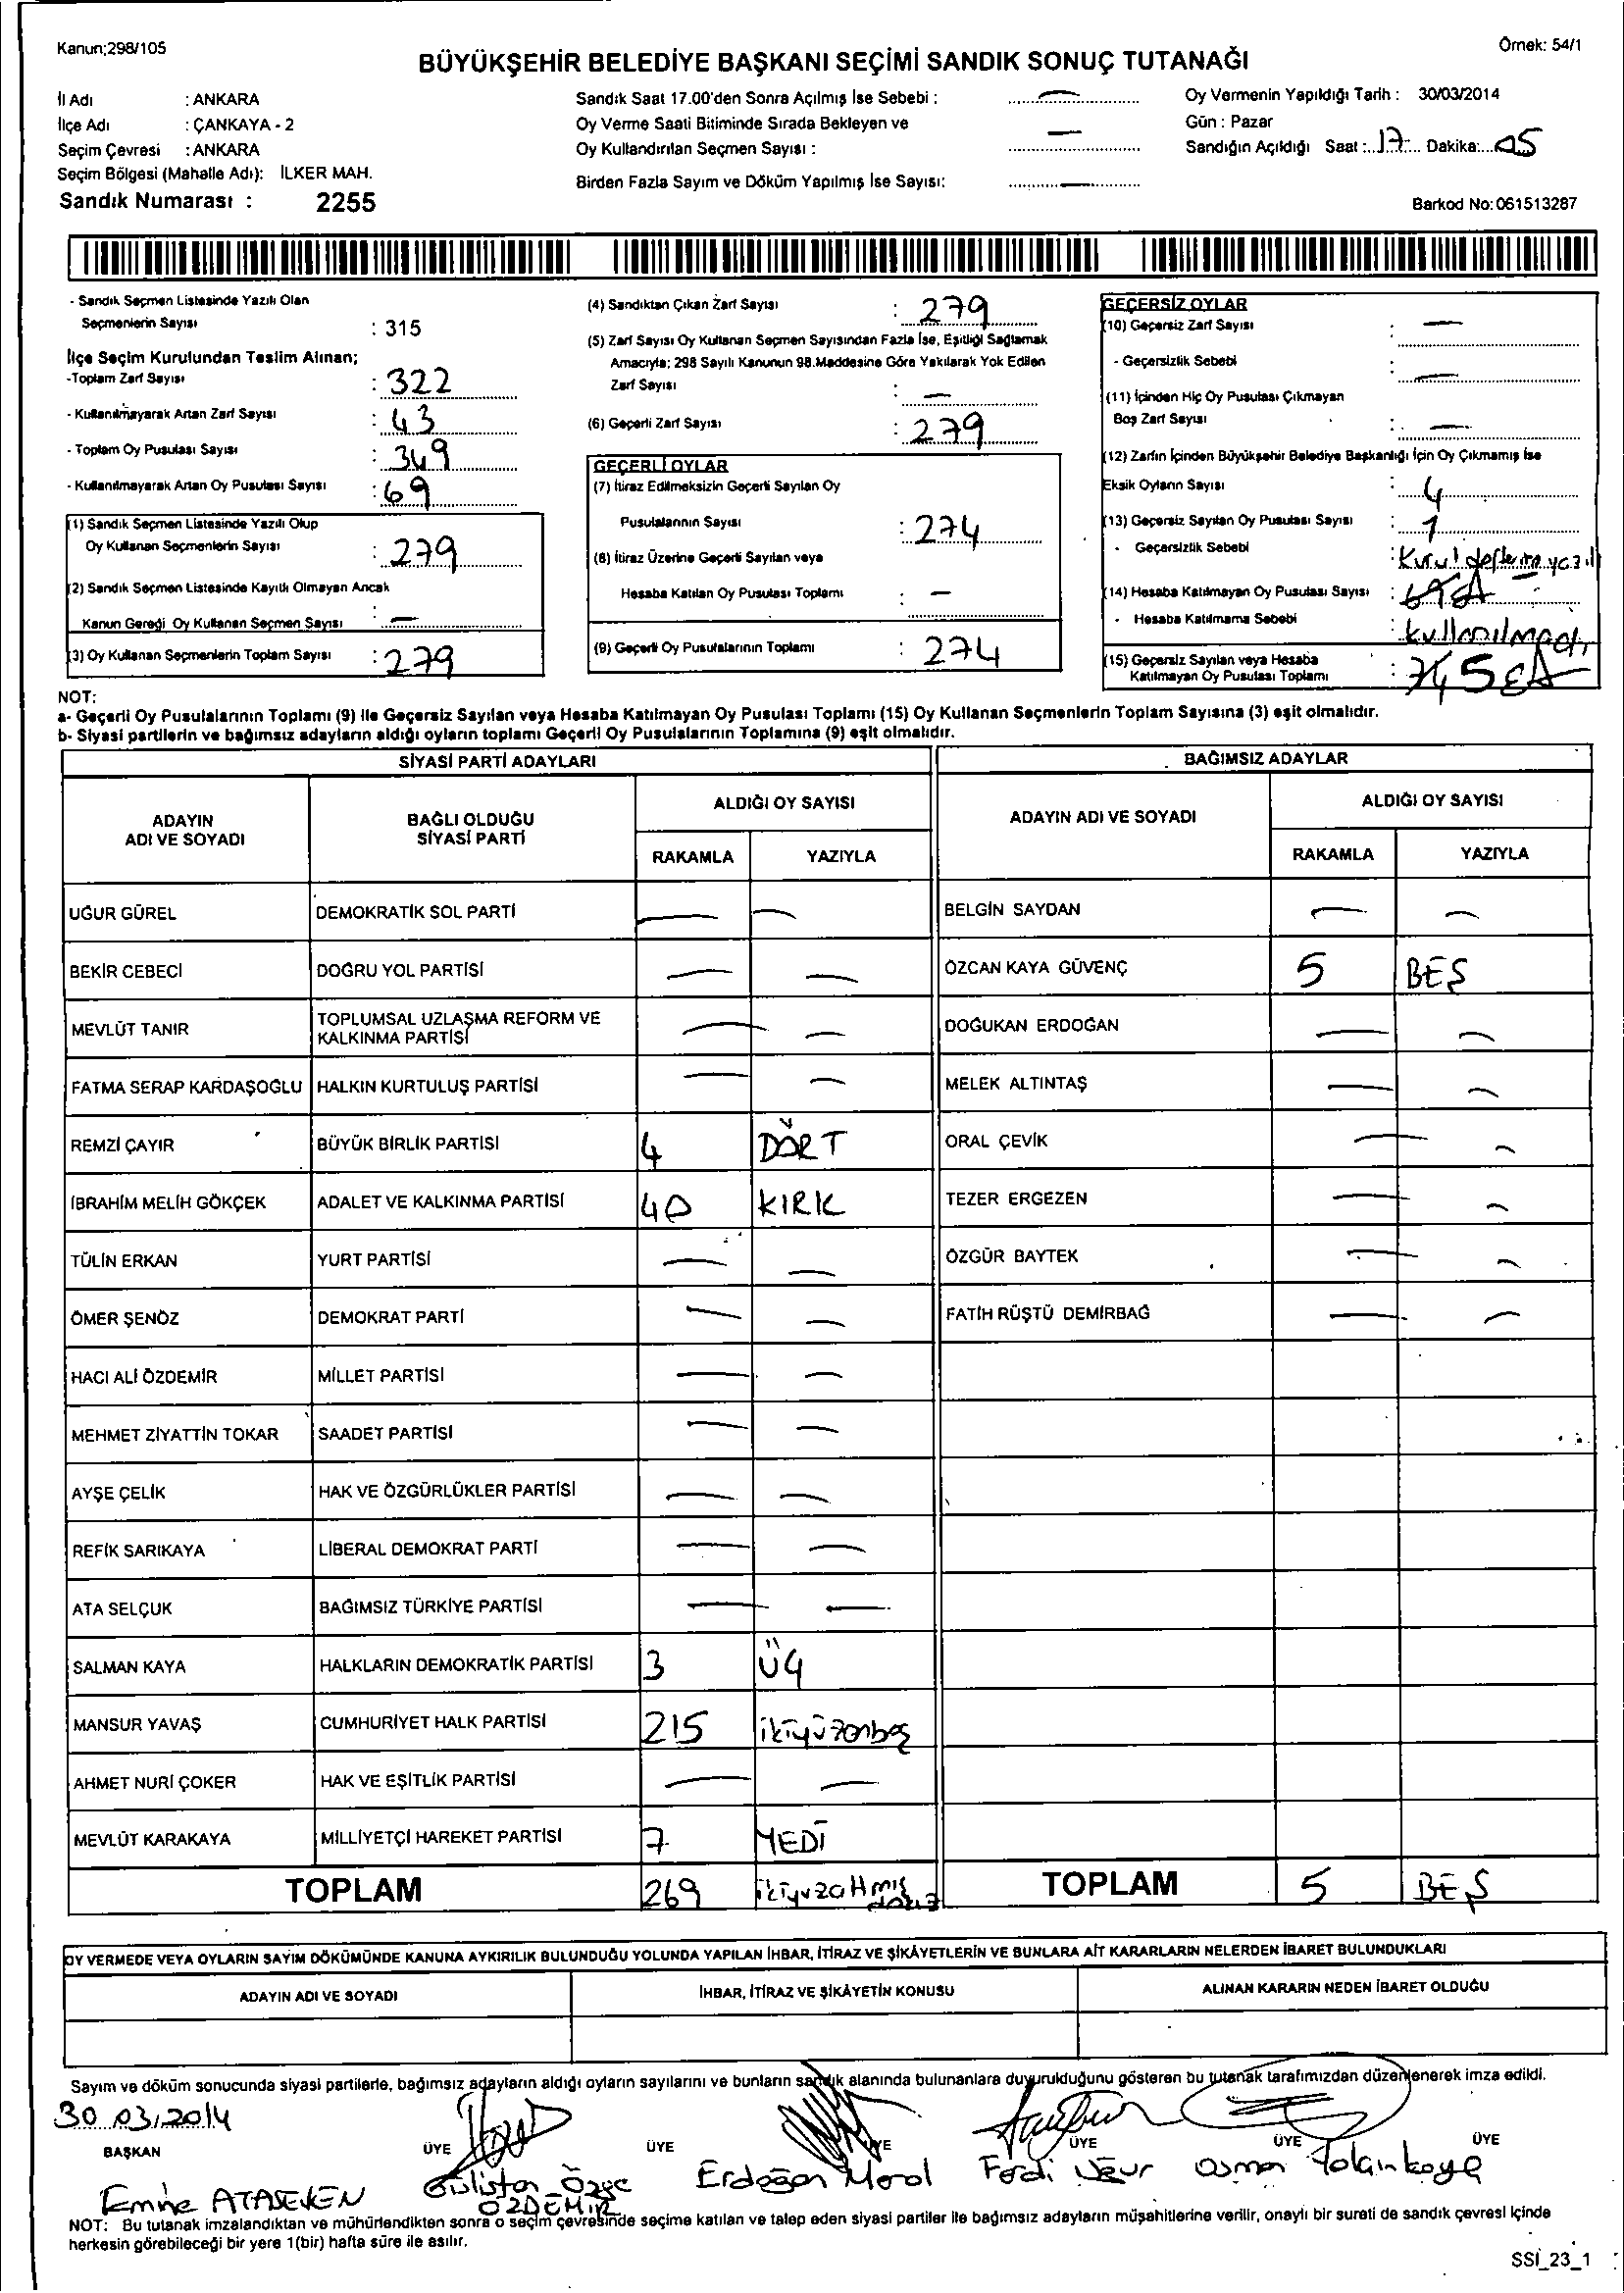 Kanun;298/105
Örnek: 54/1
BÜYÜKŞEHİR BELEDİYE BAŞKANI SEÇİMİ SANDIK SONUÇ TUTANAĞI
İl Adı : ANKARA
İlçe Adı : ÇANKAYA - 2
Seçim Çevresi : ANKARA
Seçim Bölgesi (Mahalle Adı): İLKER MAH.
Sandık Numarası : 2255
Sandık Saat 17.00'den Sonra Açılmış İse Sebebi : —
Oy Verme Saati Bitiminde Sırada Bekleyen ve
Oy Kullandırılan Seçmen Sayısı : —
Birden Fazla Sayım ve Döküm Yapılmış İse Sayısı: —
Oy Vermenin Yapıldığı Tarih : 30/03/2014
Gün : Pazar
Sandığın Açıldığı Saat :..17... Dakika:...05
Barkod No: 061513287
- Sandık Seçmen Listesinde Yazılı Olan
Seçmenlerin Sayısı : 315
İlçe Seçim Kurulundan Teslim Alınan;
-Toplam Zarf Sayısı : 322
- Kullanılmayarak Artan Zarf Sayısı : 43
- Toplam Oy Pusulası Sayısı : 349
- Kullanılmayarak Artan Oy Pusulası Sayısı : 69
(1) Sandık Seçmen Listesinde Yazılı Olup
Oy Kullanan Seçmenlerin Sayısı : 279
(2) Sandık Seçmen Listesinde Kayıtlı Olmayan Ancak
Kanun Gereği Oy Kullanan Seçmen Sayısı : —
(3) Oy Kullanan Seçmenlerin Toplam Sayısı : 279
(4) Sandıktan Çıkan Zarf Sayısı : 279
(5) Zarf Sayısı Oy Kullanan Seçmen Sayısından Fazla İse, Eşitliği Sağlamak
Amacıyla; 298 Sayılı Kanunun 98.Maddesine Göre Yakılarak Yok Edilen
Zarf Sayısı : —
(6) Geçerli Zarf Sayısı : 279
GEÇERLİ OYLAR
(7) İtiraz Edilmeksizin Geçerli Sayılan Oy
Pusulalarının Sayısı : 274
(8) İtiraz Üzerine Geçerli Sayılan veya
Hesaba Katılan Oy Pusulası Toplamı : —
(9) Geçerli Oy Pusulalarının Toplamı : 274
GEÇERSİZ OYLAR
(10) Geçersiz Zarf Sayısı : —
- Geçersizlik Sebebi : —
(11) İçinden Hiç Oy Pusulası Çıkmayan
Boş Zarf Sayısı : —
(12) Zarfın İçinden Büyükşehir Belediye Başkanlığı İçin Oy Çıkmamış İse
Eksik Oyların Sayısı : 4
(13) Geçersiz Sayılan Oy Pusulası Sayısı : 1
- Geçersizlik Sebebi : Kurul defterine yazıl
(14) Hesaba Katılmayan Oy Pusulası Sayısı : —
- Hesaba Katılmama Sebebi : kullanılmadı
(15) Geçersiz Sayılan veya Hesaba
Katılmayan Oy Pusulası Toplamı : 5 EA
NOT:
a- Geçerli Oy Pusulalarının Toplamı (9) ile Geçersiz Sayılan veya Hesaba Katılmayan Oy Pusulası Toplamı (15) Oy Kullanan Seçmenlerin Toplam Sayısına (3) eşit olmalıdır.
b- Siyasi partilerin ve bağımsız adayların aldığı oyların toplamı Geçerli Oy Pusulalarının Toplamına (9) eşit olmalıdır.
SİYASİ PARTİ ADAYLARI BAĞIMSIZ ADAYLAR
ADAYIN ADI VE SOYADI BAĞLI OLDUĞU SİYASİ PARTİ ALDIĞI OY SAYISI ADAYIN ADI VE SOYADI ALDIĞI OY SAYISI
RAKAMLA YAZIYLA RAKAMLA YAZIYLA
UĞUR GÜREL DEMOKRATİK SOL PARTİ — — BELGİN SAYDAN — —
BEKİR CEBECİ DOĞRU YOL PARTİSİ — — ÖZCAN KAYA GÜVENÇ 5 BEŞ
MEVLÜT TANIR TOPLUMSAL UZLAŞMA REFORM VE KALKINMA PARTİSİ — — DOĞUKAN ERDOĞAN — —
FATMA SERAP KARDAŞOĞLU HALKIN KURTULUŞ PARTİSİ — — MELEK ALTINTAŞ — —
REMZİ ÇAYIR BÜYÜK BİRLİK PARTİSİ 4 DÖRT ORAL ÇEVİK — —
İBRAHİM MELİH GÖKÇEK ADALET VE KALKINMA PARTİSİ 40 KIRK TEZER ERGEZEN — —
TÜLİN ERKAN YURT PARTİSİ — — ÖZGÜR BAYTEK — —
ÖMER ŞENÖZ DEMOKRAT PARTİ — — FATİH RÜŞTÜ DEMİRBAĞ — —
HACI ALİ ÖZDEMİR MİLLET PARTİSİ — —
MEHMET ZİYATTİN TOKAR SAADET PARTİSİ — —
AYŞE ÇELİK HAK VE ÖZGÜRLÜKLER PARTİSİ — —
REFİK SARIKAYA LİBERAL DEMOKRAT PARTİ — —
ATA SELÇUK BAĞIMSIZ TÜRKİYE PARTİSİ — —
SALMAN KAYA HALKLARIN DEMOKRATİK PARTİSİ 3 ÜÇ
MANSUR YAVAŞ CUMHURİYET HALK PARTİSİ 215 ikiyüzonbeş
AHMET NURİ ÇOKER HAK VE EŞİTLİK PARTİSİ — —
MEVLÜT KARAKAYA MİLLİYETÇİ HAREKET PARTİSİ 7 YEDİ
TOPLAM 269 ikiyüzaltmış dokuz TOPLAM 5 BEŞ
OY VERMEDE VEYA OYLARIN SAYIM DÖKÜMÜNDE KANUNA AYKIRILIK BULUNDUĞU YOLUNDA YAPILAN İHBAR, İTİRAZ VE ŞİKÂYETLERİN VE BUNLARA AİT KARARLARIN NELERDEN İBARET BULUNDUKLARI
ADAYIN ADI VE SOYADI İHBAR, İTİRAZ VE ŞİKÂYETİN KONUSU ALINAN KARARIN NEDEN İBARET OLDUĞU
Sayım ve döküm sonucunda siyasi partilerle, bağımsız adayların aldığı oyların sayılarını ve bunların sandık alanında bulunanlara duyurulduğunu gösteren bu tutanak tarafımızdan düzenlenerek imza edildi.
30.03.2014
BAŞKAN ÜYE ÜYE ÜYE ÜYE ÜYE ÜYE
Emine ATASEVEN Gülistan Özge ÖZDEMİR Erdoğan Meral Ferdi Uğur Osman Tolga
NOT: Bu tutanak imzalandıktan ve mühürlendikten sonra o seçim çevresinde seçime katılan ve talep eden siyasi partiler ile bağımsız adayların müşahitlerine verilir, onaylı bir sureti de sandık çevresi içinde
herkesin görebileceği bir yere 1(bir) hafta süre ile asılır.
SSİ_23_1